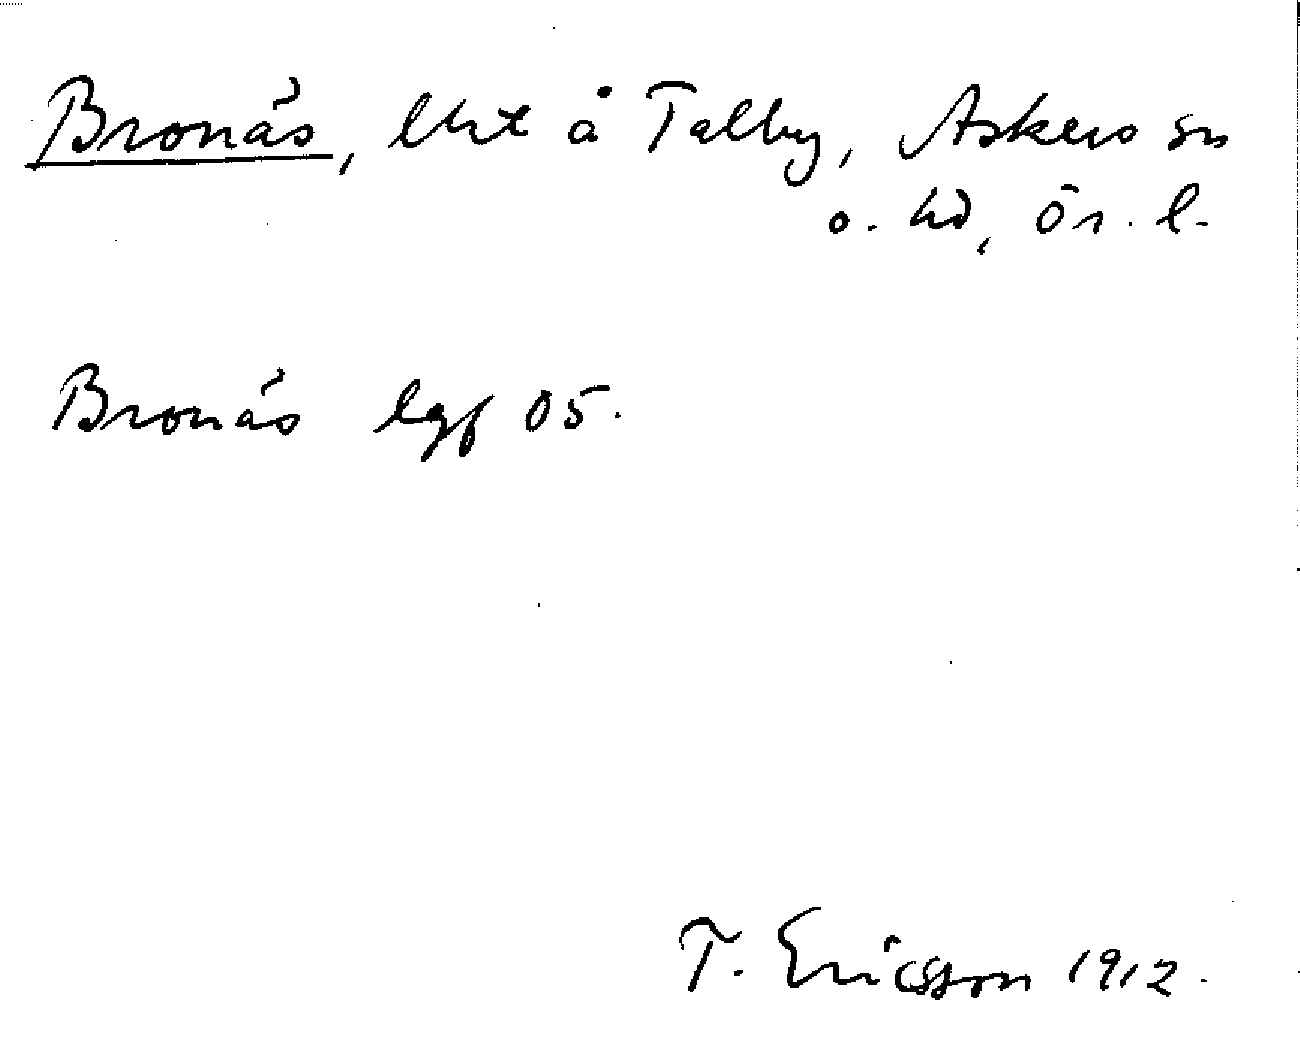 Bronäs, lht å Talby, Askers sn
o. hd, Ör. l.
Bronäs lgf 05.
T. Ericsson 1912.